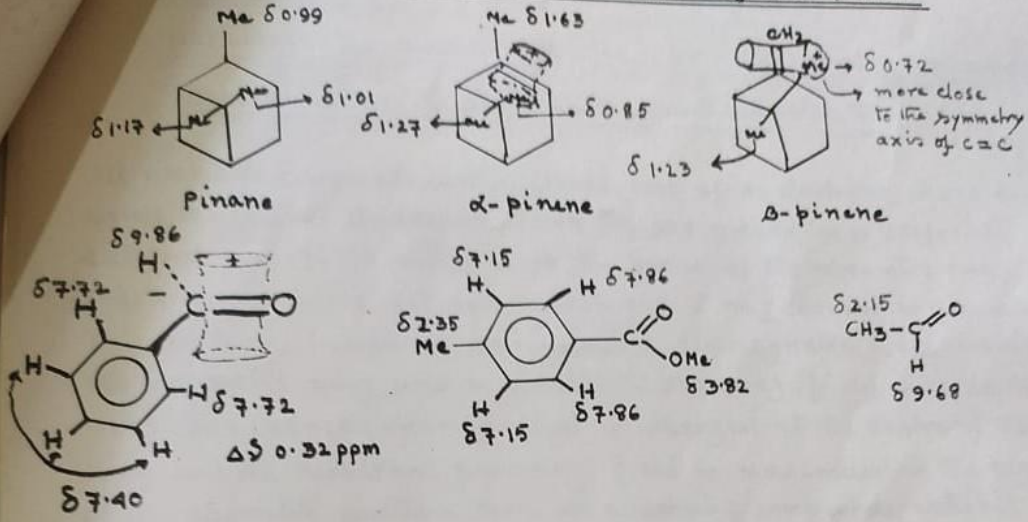 Me δ 0.99
Me
δ 1.01
Me
δ 1.17
Pinane
Me δ 1.63
+
Me
δ 0.85
Me
δ 1.27
α-pinene
CH2
+
Me
δ 0.72
more close
to the symmetry
axis of C=C
Me
δ 1.23
β-pinene
δ 9.86
H
+
δ 7.72
H
–
C
O
H
H
δ 7.72
H
H
Δδ 0.32 ppm
δ 7.40
δ 7.15
H
H δ 7.86
δ 2.35
Me
C
O
OMe
δ 3.82
H
δ 7.15
H
δ 7.86
δ 2.15
CH3–C
O
H
δ 9.68